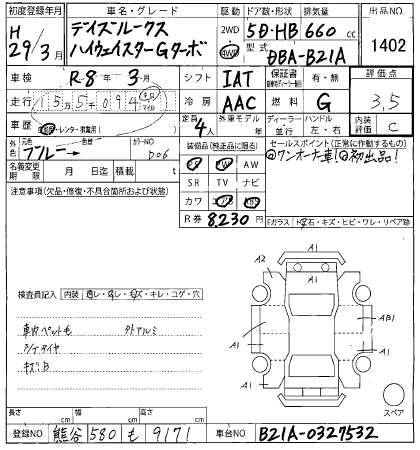 初度登録年月 車名・グレード 駆動 ドア数・形状 排気量 出品NO.
H 29年/3月 デイズルークス ハイウェイスターGターボ 2WD 4WD 5D・HB 660 cc 1402
型式 DBA-B21A
車検 R-8年 3月 シフト IAT 保証書 有・無 評価点
走行 155千094 キロ マイル 冷房 AAC 燃料 G 3.5
車歴 自家用・レンター・教業用( ) 定員 4人 外車モデル 年 ディーラー・並行 ハンドル 左・右 内装 評価 C
外色 元色 ブルー 色替 カラーNO 装備品(純正品に限る) セールスポイント(正常に作動するもの)
PS PW AW ◎ワンオーナー車!◎初出品!
名義変更期限 月 日迄 積載 t SR TV ナビ
注意事項(欠品・修復・不具合箇所および状態) カワ エアB ABS
R券 8,230円 Fガラス トビ石・キズ・ヒビ・ワレ・リペア跡
A1
A2 A1
検査員記入 内装 スレ・ヨレ・キズ・キレ・コゲ・穴
車内ペット毛 外アルミ
シケタイヤ
キズB
A1 AB1
A1 A1
A1
スペア
長さ cm 幅 cm 高さ cm
登録NO 熊谷 580 も 9171 車台NO B21A-0327532